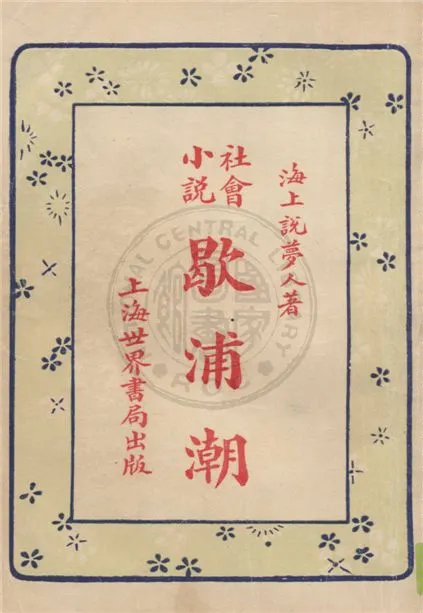 海上説夢人著
社會
小説
歇浦潮
上海世界書局出版
NATIONAL CENTRAL LIBRARY
國家
圖書